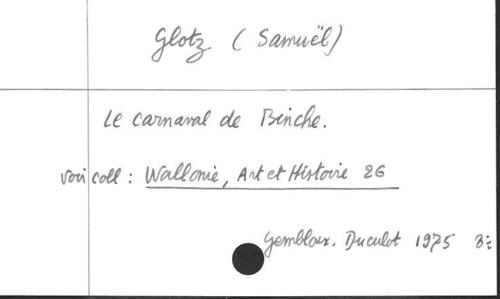 Glotz (Samuël)
Le carnaval de Binche.
voir coll : Wallonie, Art et Histoire 26
Gembloux. Duculot 1975 8: